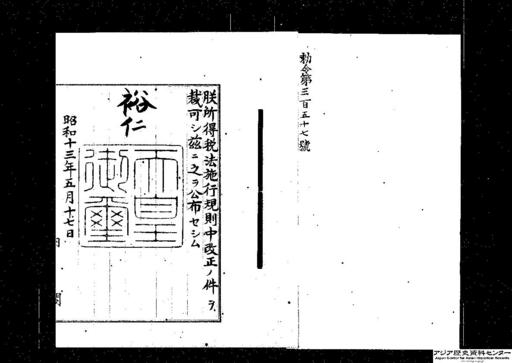 勅令第三百五十七號
朕所得税法施行規則中改正ノ件ヲ
裁可シ茲ニ之ヲ公布セシム
裕仁
天皇
御璽
昭和十三年五月十七日
アジア歴史資料センター
Japan Center for Asian Historical Records